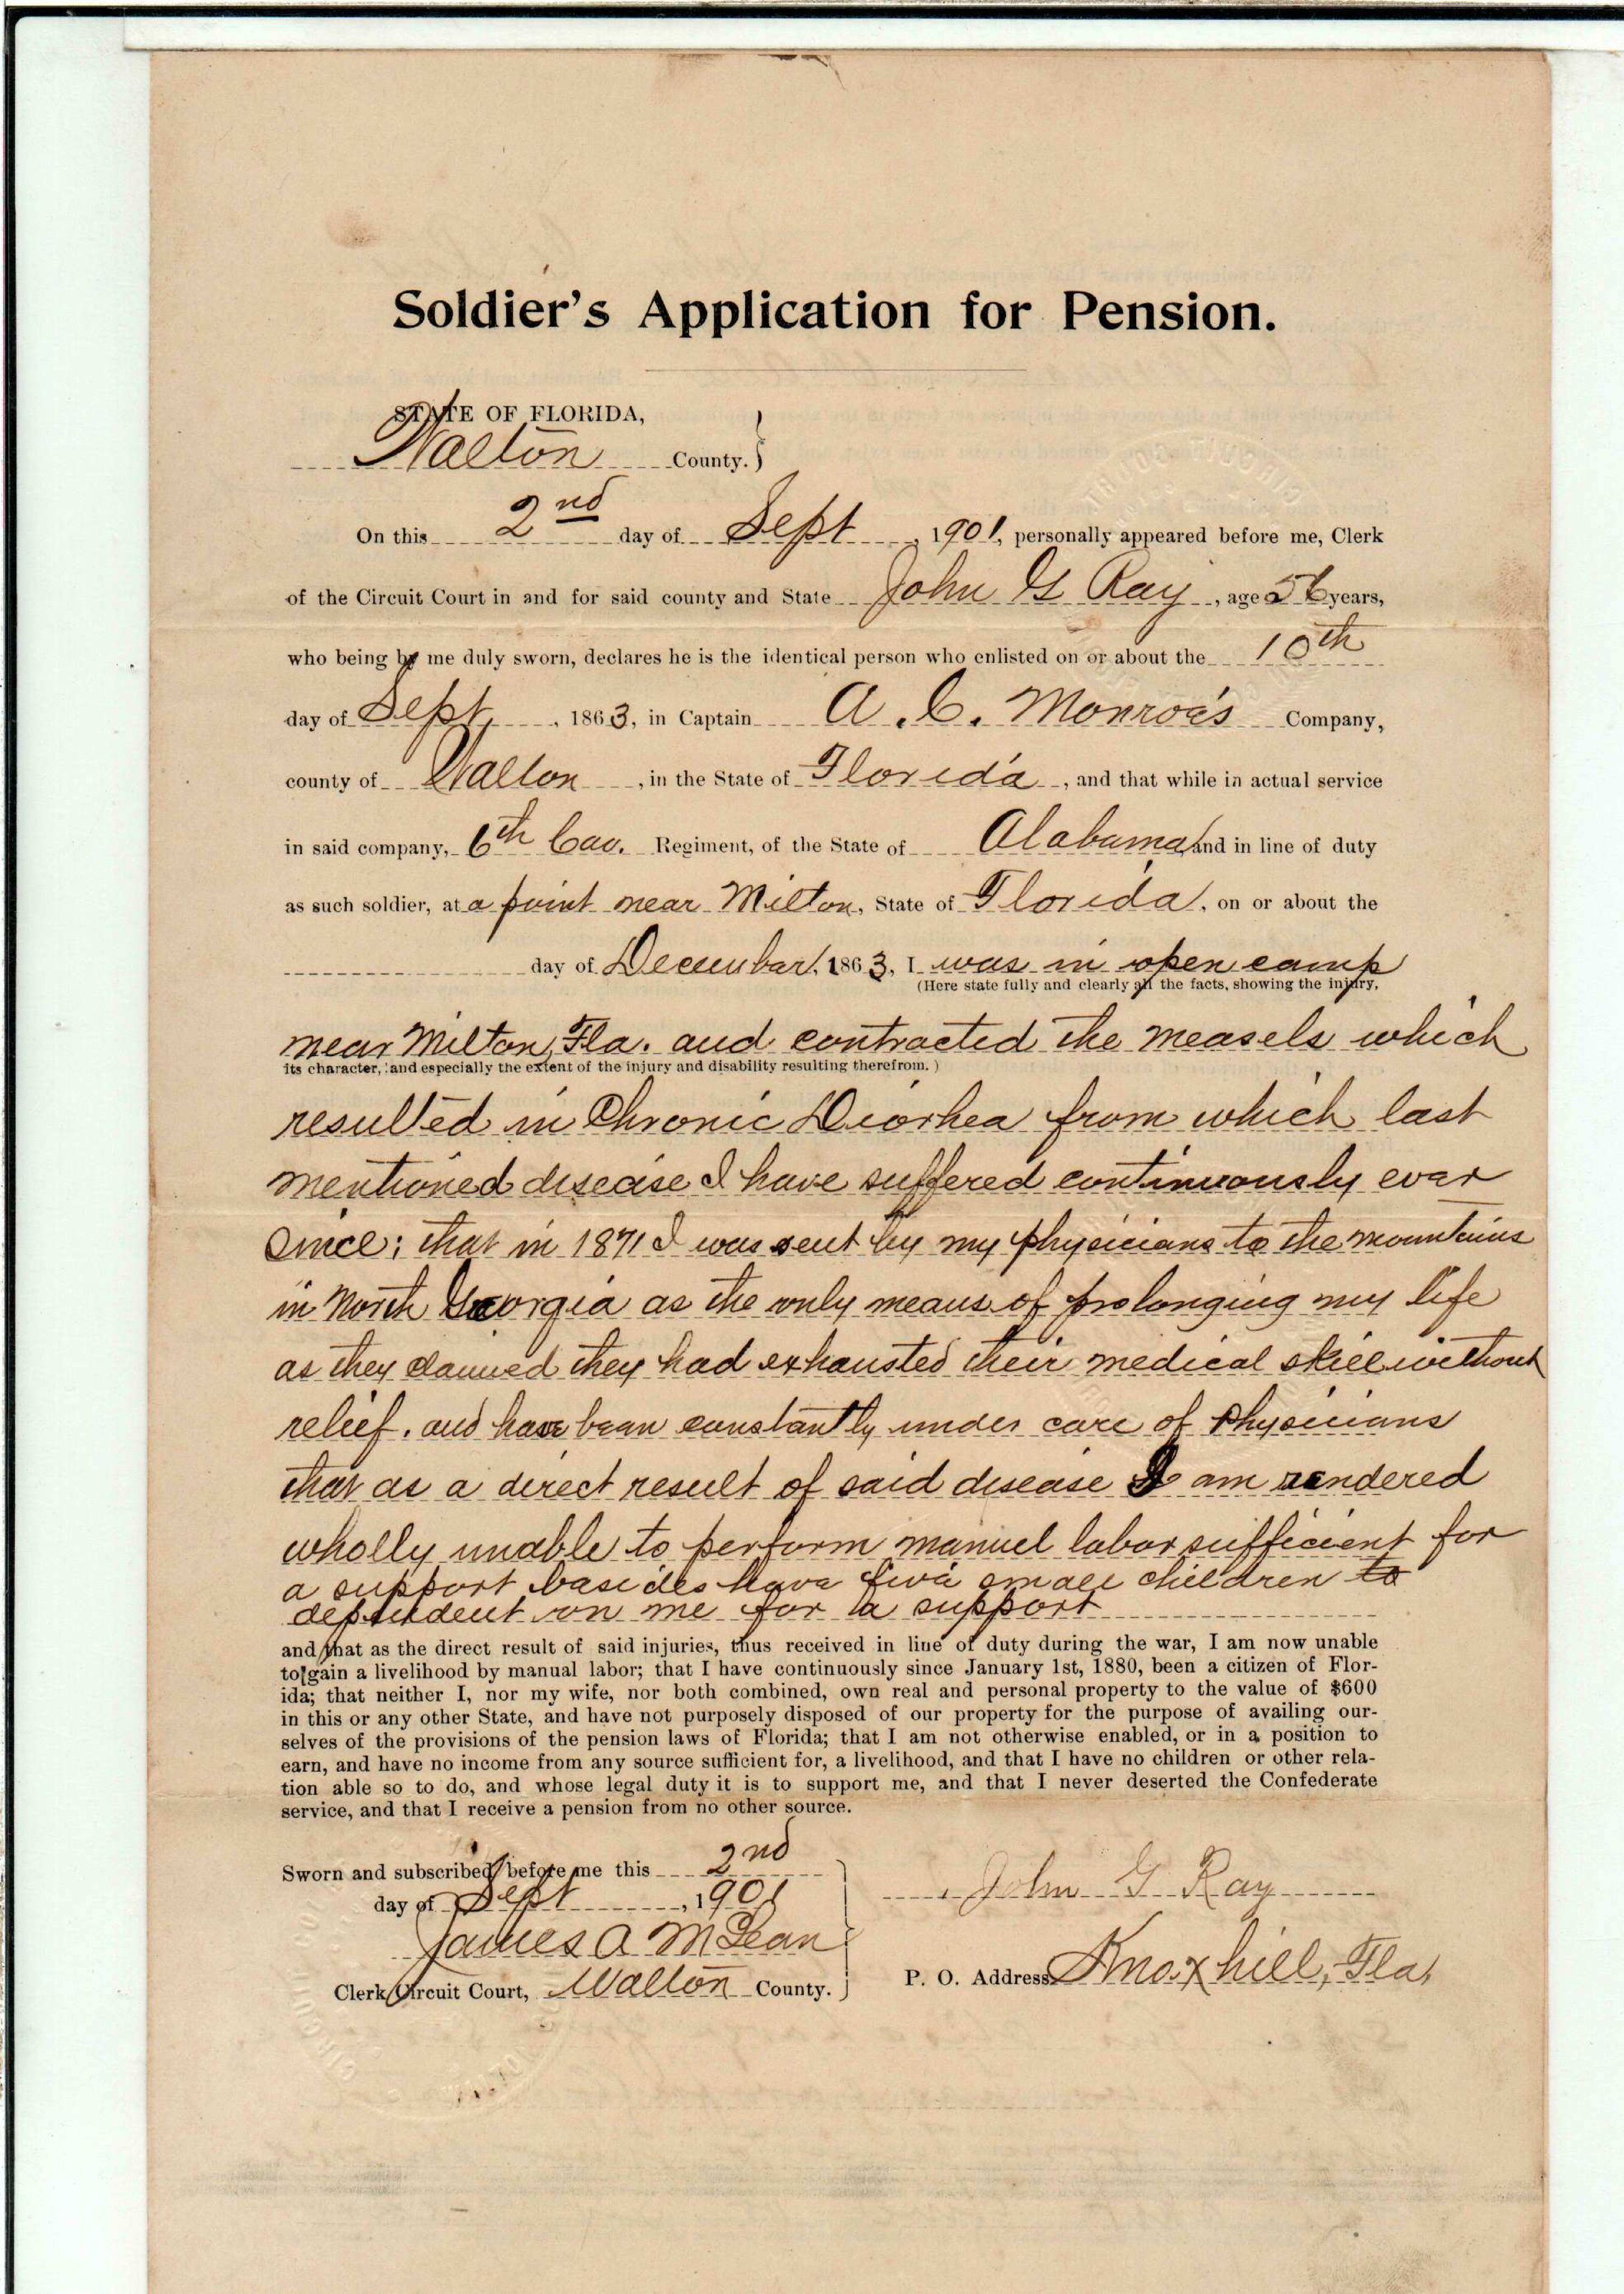 Soldier's Application for Pension.
STATE OF FLORIDA,
Walton County.
On this 2nd day of Sept, 1901, personally appeared before me, Clerk
of the Circuit Court in and for said county and State John G Ray, age 56 years,
who being by me duly sworn, declares he is the identical person who enlisted on or about the 10th
day of Sept, 1863, in Captain A. C. Monroe's Company,
county of Walton, in the State of Florida, and that while in actual service
in said company, 6th Cav. Regiment, of the State of Alabama, and in line of duty
as such soldier, at a point near Milton, State of Florida, on or about the
day of December, 1863, I was in open camp
(Here state fully and clearly all the facts, showing the injury,
near Milton, Fla. and contracted the measels which
its character, and especially the extent of the injury and disability resulting therefrom.)
resulted in Chronic Diorhea from which last
mentioned disease I have suffered continuously ever
since; that in 1871 I was sent by my physicians to the mountains
in North Georgia as the only means of prolonging my life
as they claimed they had exhausted their medical skill without
relief. and have been constantly under care of Physicians
that as a direct result of said disease I am rendered
wholly unable to perform manuel labor sufficient for
a support besides have five small children to
dependent on me for a support
and that as the direct result of said injuries, thus received in line of duty during the war, I am now unable
to gain a livelihood by manual labor; that I have continuously since January 1st, 1880, been a citizen of Flor-
ida; that neither I, nor my wife, nor both combined, own real and personal property to the value of $600
in this or any other State, and have not purposely disposed of our property for the purpose of availing our-
selves of the provisions of the pension laws of Florida; that I am not otherwise enabled, or in a position to
earn, and have no income from any source sufficient for, a livelihood, and that I have no children or other rela-
tion able so to do, and whose legal duty it is to support me, and that I never deserted the Confederate
service, and that I receive a pension from no other source.
Sworn and subscribed before me this 2nd
day of Sept, 1901
James A McLean
Clerk Circuit Court, Walton County.
John G. Ray
P. O. Address Knoxhill, Fla.